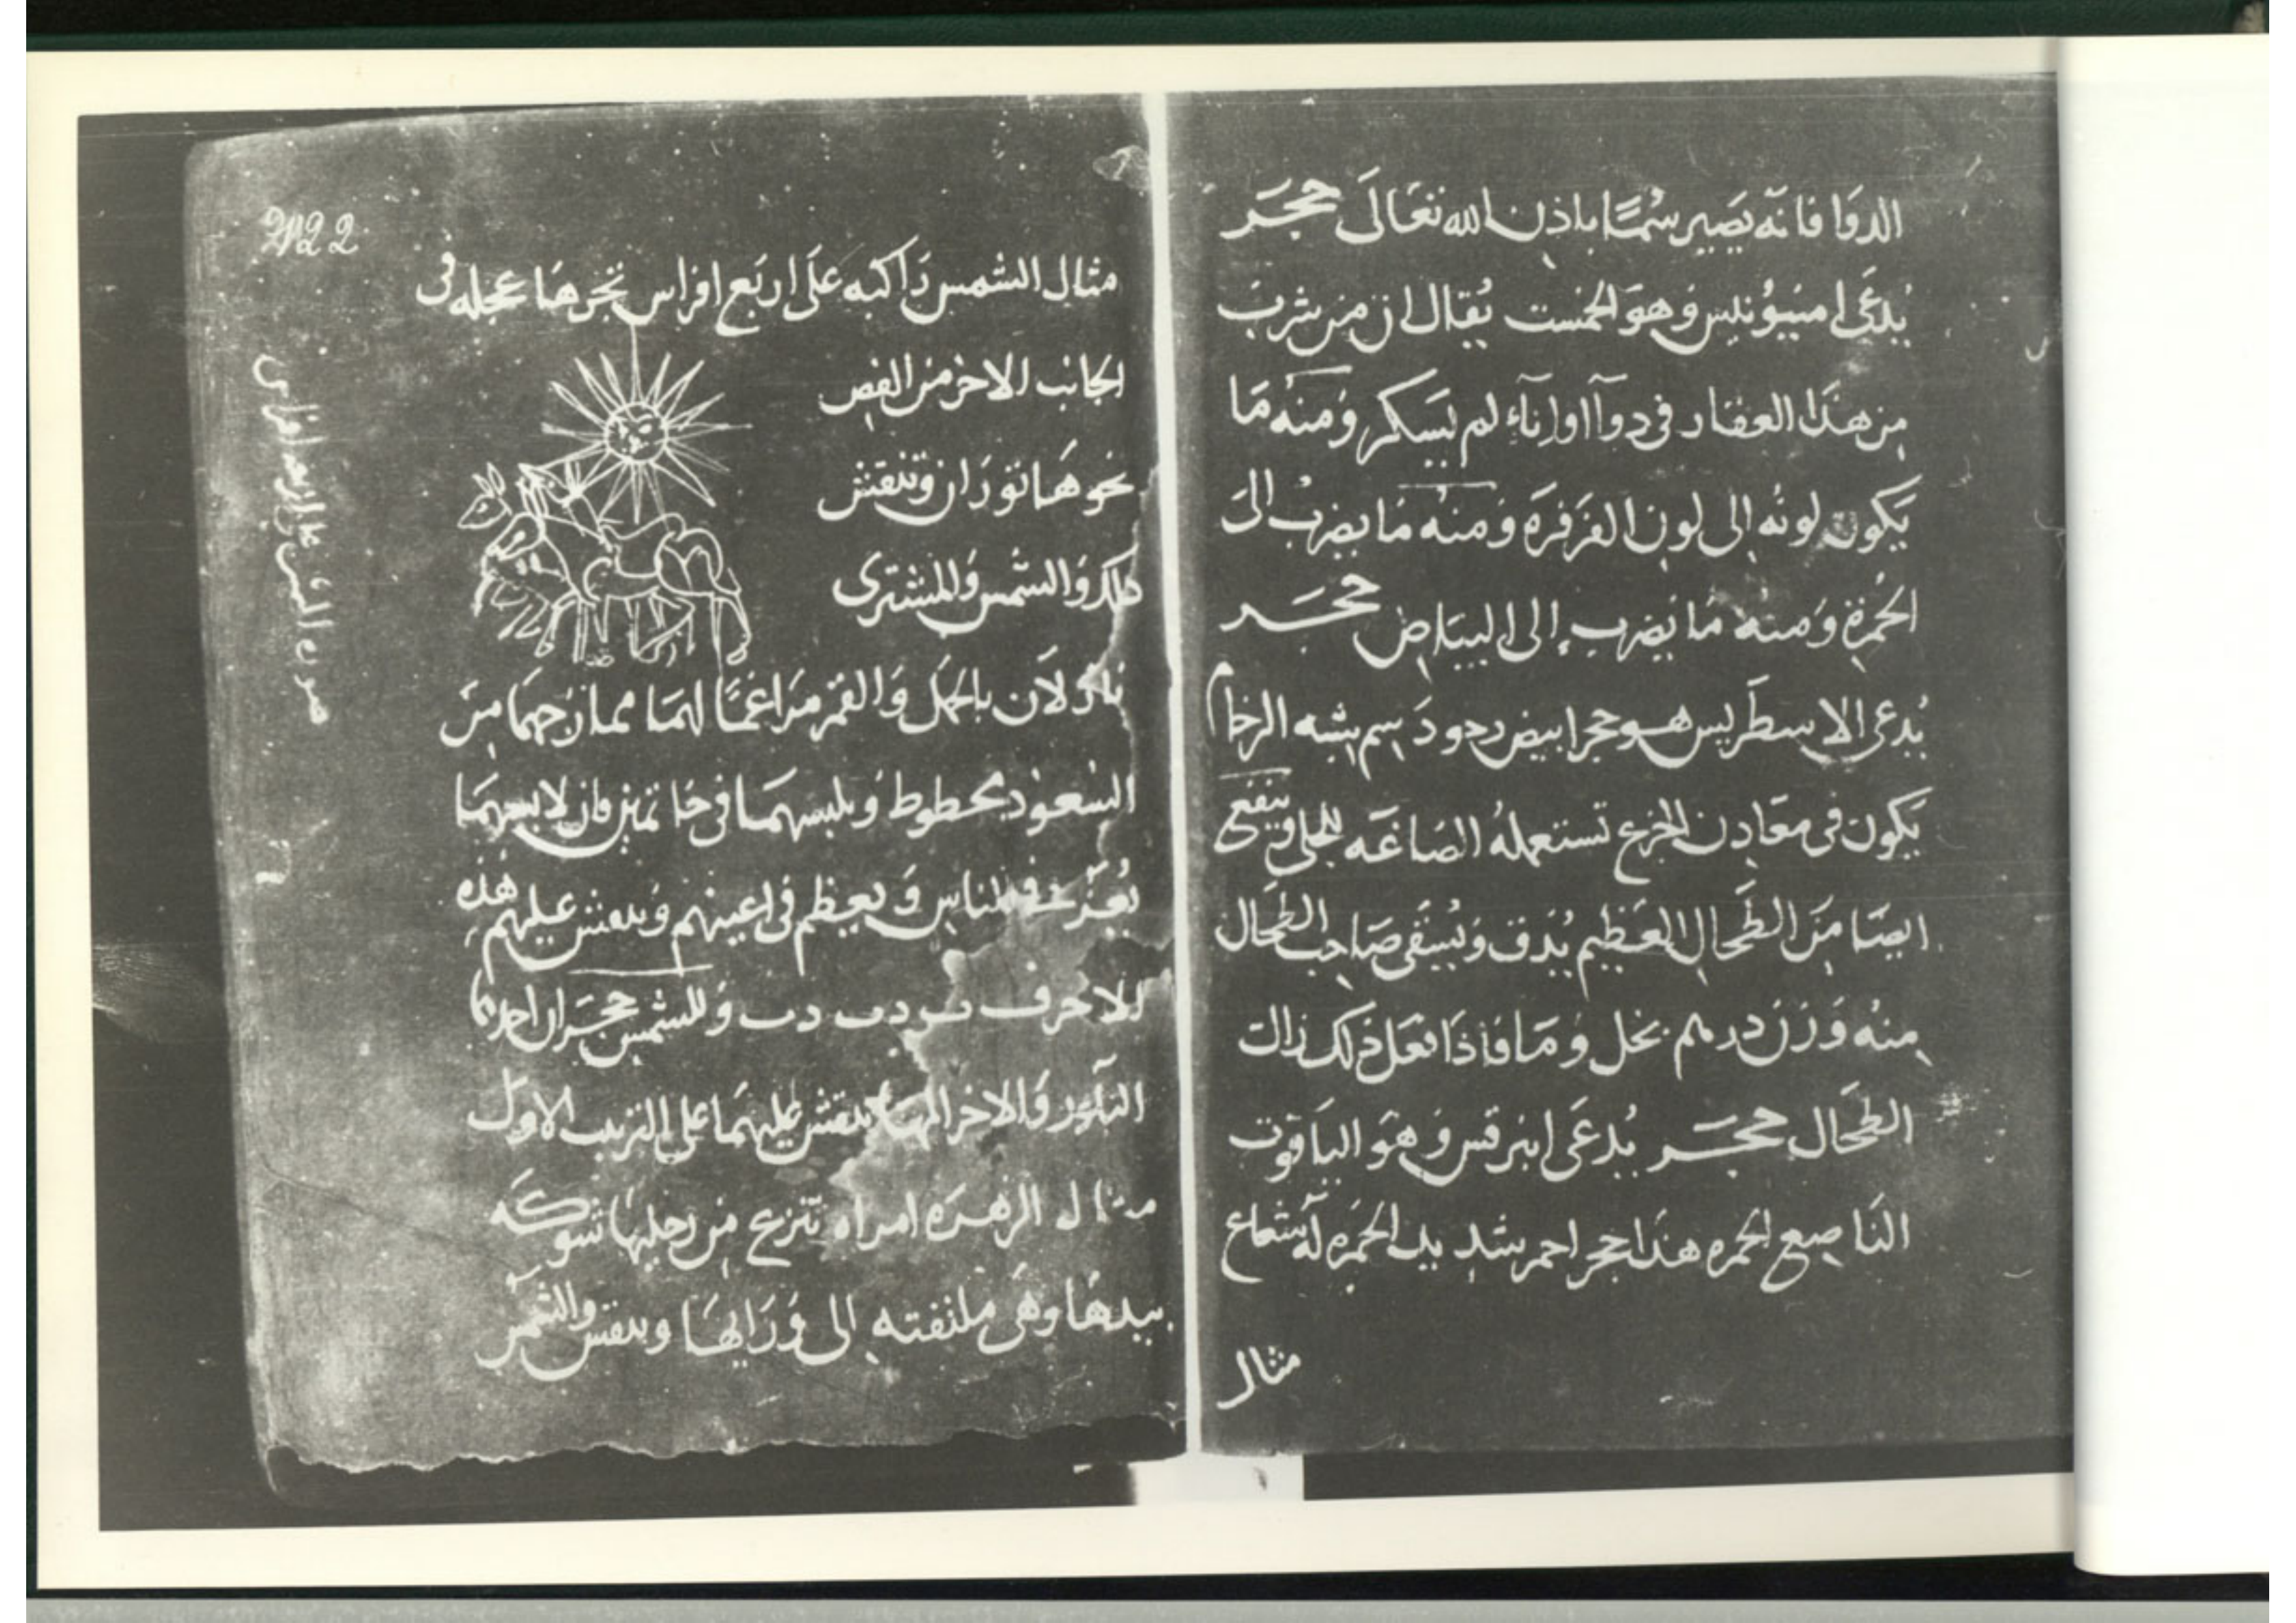 الدوا فانه يصير سما باذن الله تعالى حجر
يدعى امنيونليس وهو الجمست يقال ان من شرب
من هذا العقار فى دوآ او اناء لم يسكر ومنه ما
يكون لونه الى لون الفرفرة ومنه ما يضرب الى
الحمرة ومنه ما يضرب الى البياض حجر
يدعى الاسطريس هو حجر ابيض دسم يشبه الرخام
يكون فى معادن الجزع تستعمله الصاغه للجلى وينفع
ايضا من الطحال العظيم يدق ويسقى صاحب الطحال
منه وزن درهم بخل وما فاذا فعل ذلك زالت
الطحال حجر يدعى ابنرقس وهو الياقوت
الناصع الحمره هذا حجر احمر شديد الحمره له شعاع
مثال
مثال الشمس راكبه على اربع افراس تجرها عجله فى
الجانب الاخر من الفص
نحوها ثوران وتنقش
ذلك والشمس والمشترى
نازلان بالحمل والقمر مراغما لهما ممازجهما من
السعود بحطوط ويلبسهما فى خاتمين فان لابسهما
يعزز فى الناس ويعظم فى اعينهم وينقش عليهم هذه
الاحرف دب دب وللشمس حجران احدهما
البلور والاخر المها ينقش عليهما على الترتيب الاول
مثال الزهره امراه تنزع من رجليها شوكه
بيدها وهى ملتفته الى ورايها وينقش والشمس